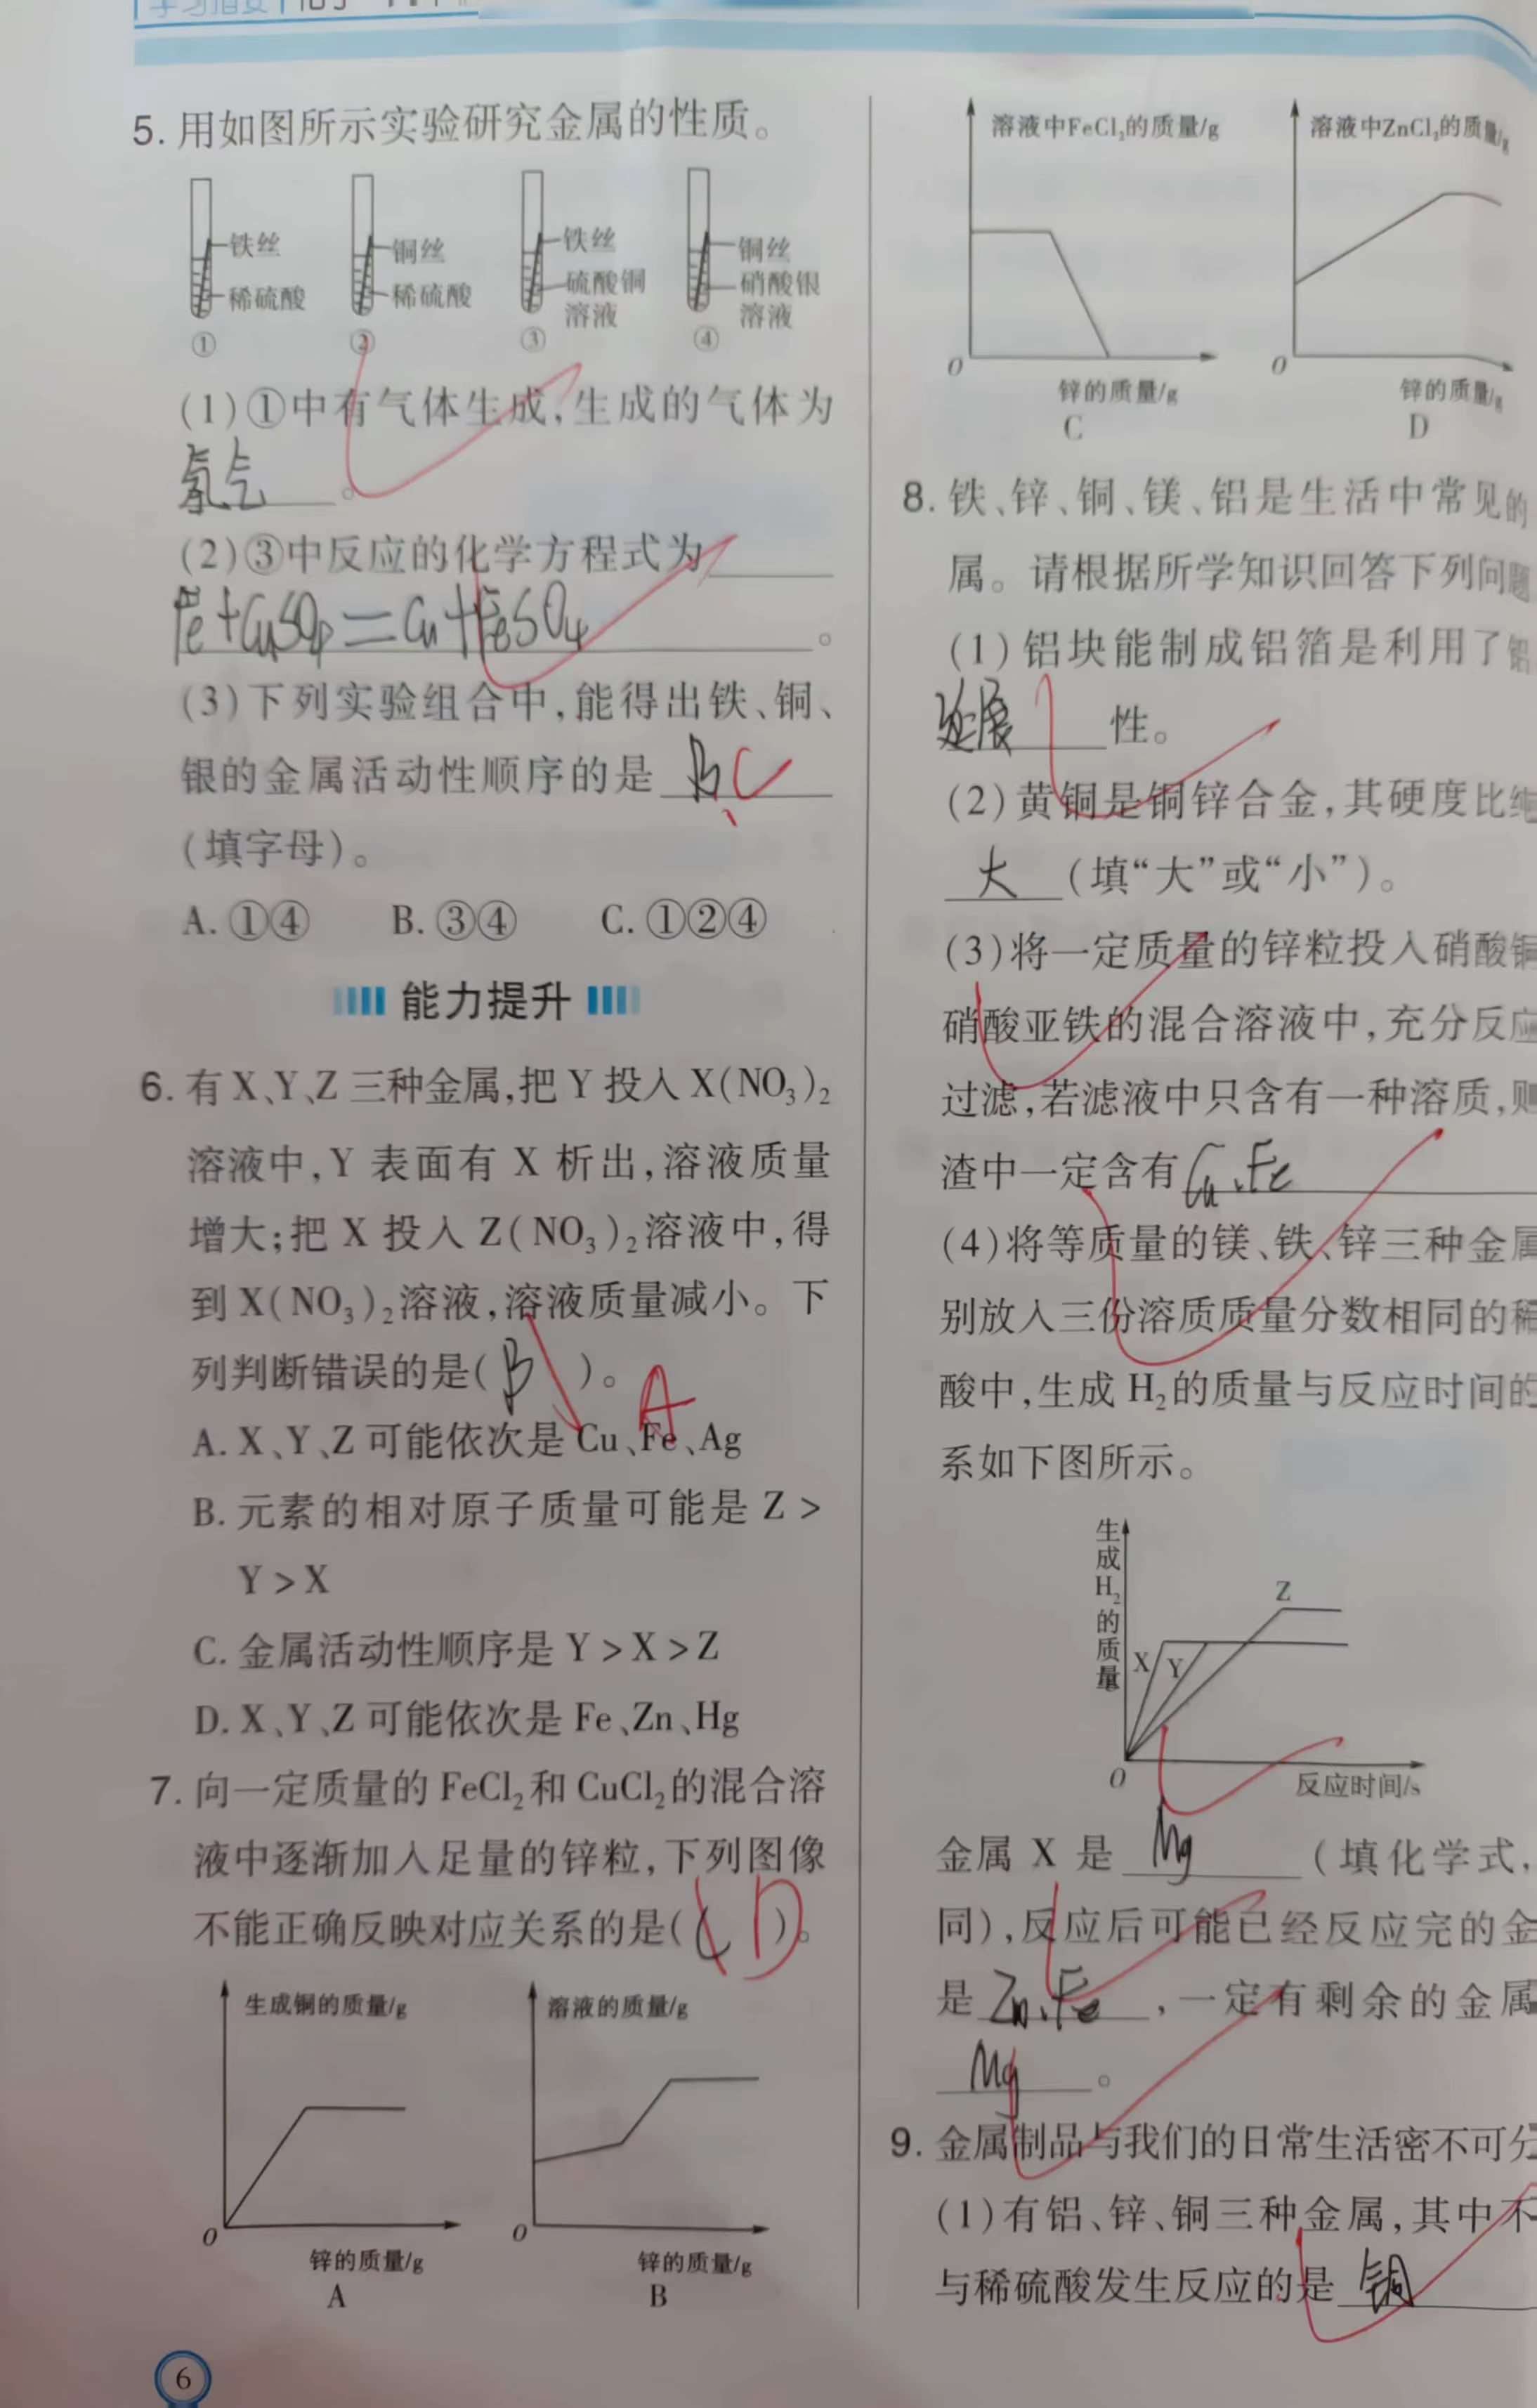 学习指要
5. 用如图所示实验研究金属的性质。
铁丝
稀硫酸
①
铜丝
稀硫酸
②
铁丝
硫酸铜
溶液
③
铜丝
硝酸银
溶液
④
(1)①中有气体生成,生成的气体为
氢气。
(2)③中反应的化学方程式为
Fe+CuSO4=Cu+FeSO4。
(3)下列实验组合中,能得出铁、铜、
银的金属活动性顺序的是 B C
(填字母)。
A. ①④ B. ③④ C. ①②④
能力提升
6. 有X、Y、Z三种金属,把Y投入X(NO₃)₂
溶液中,Y表面有X析出,溶液质量
增大;把X投入Z(NO₃)₂溶液中,得
到X(NO₃)₂溶液,溶液质量减小。下
列判断错误的是( B )。 A
A. X、Y、Z可能依次是Cu、Fe、Ag
B. 元素的相对原子质量可能是Z>
Y>X
C. 金属活动性顺序是Y>X>Z
D. X、Y、Z可能依次是Fe、Zn、Hg
7. 向一定质量的FeCl₂和CuCl₂的混合溶
液中逐渐加入足量的锌粒,下列图像
不能正确反映对应关系的是( C D )。
生成铜的质量/g
O
锌的质量/g
A
溶液的质量/g
O
锌的质量/g
B
6
溶液中FeCl₂的质量/g
O
锌的质量/g
C
溶液中ZnCl₂的质量/g
O
锌的质量/g
D
8. 铁、锌、铜、镁、铝是生活中常见的
属。请根据所学知识回答下列问题
(1)铝块能制成铝箔是利用了铝
延展 性。
(2)黄铜是铜锌合金,其硬度比纯
大 (填“大”或“小”)。
(3)将一定质量的锌粒投入硝酸铜
硝酸亚铁的混合溶液中,充分反应
过滤,若滤液中只含有一种溶质,则
渣中一定含有 Cu、Fe
(4)将等质量的镁、铁、锌三种金属
别放入三份溶质质量分数相同的稀
酸中,生成H₂的质量与反应时间的
系如下图所示。
生成H₂的质量
X
Y
Z
O
反应时间/s
金属X是 Mg (填化学式,
同),反应后可能已经反应完的金
是 Zn、Fe ,一定有剩余的金属
Mg 。
9. 金属制品与我们的日常生活密不可分
(1)有铝、锌、铜三种金属,其中不
与稀硫酸发生反应的是 铜